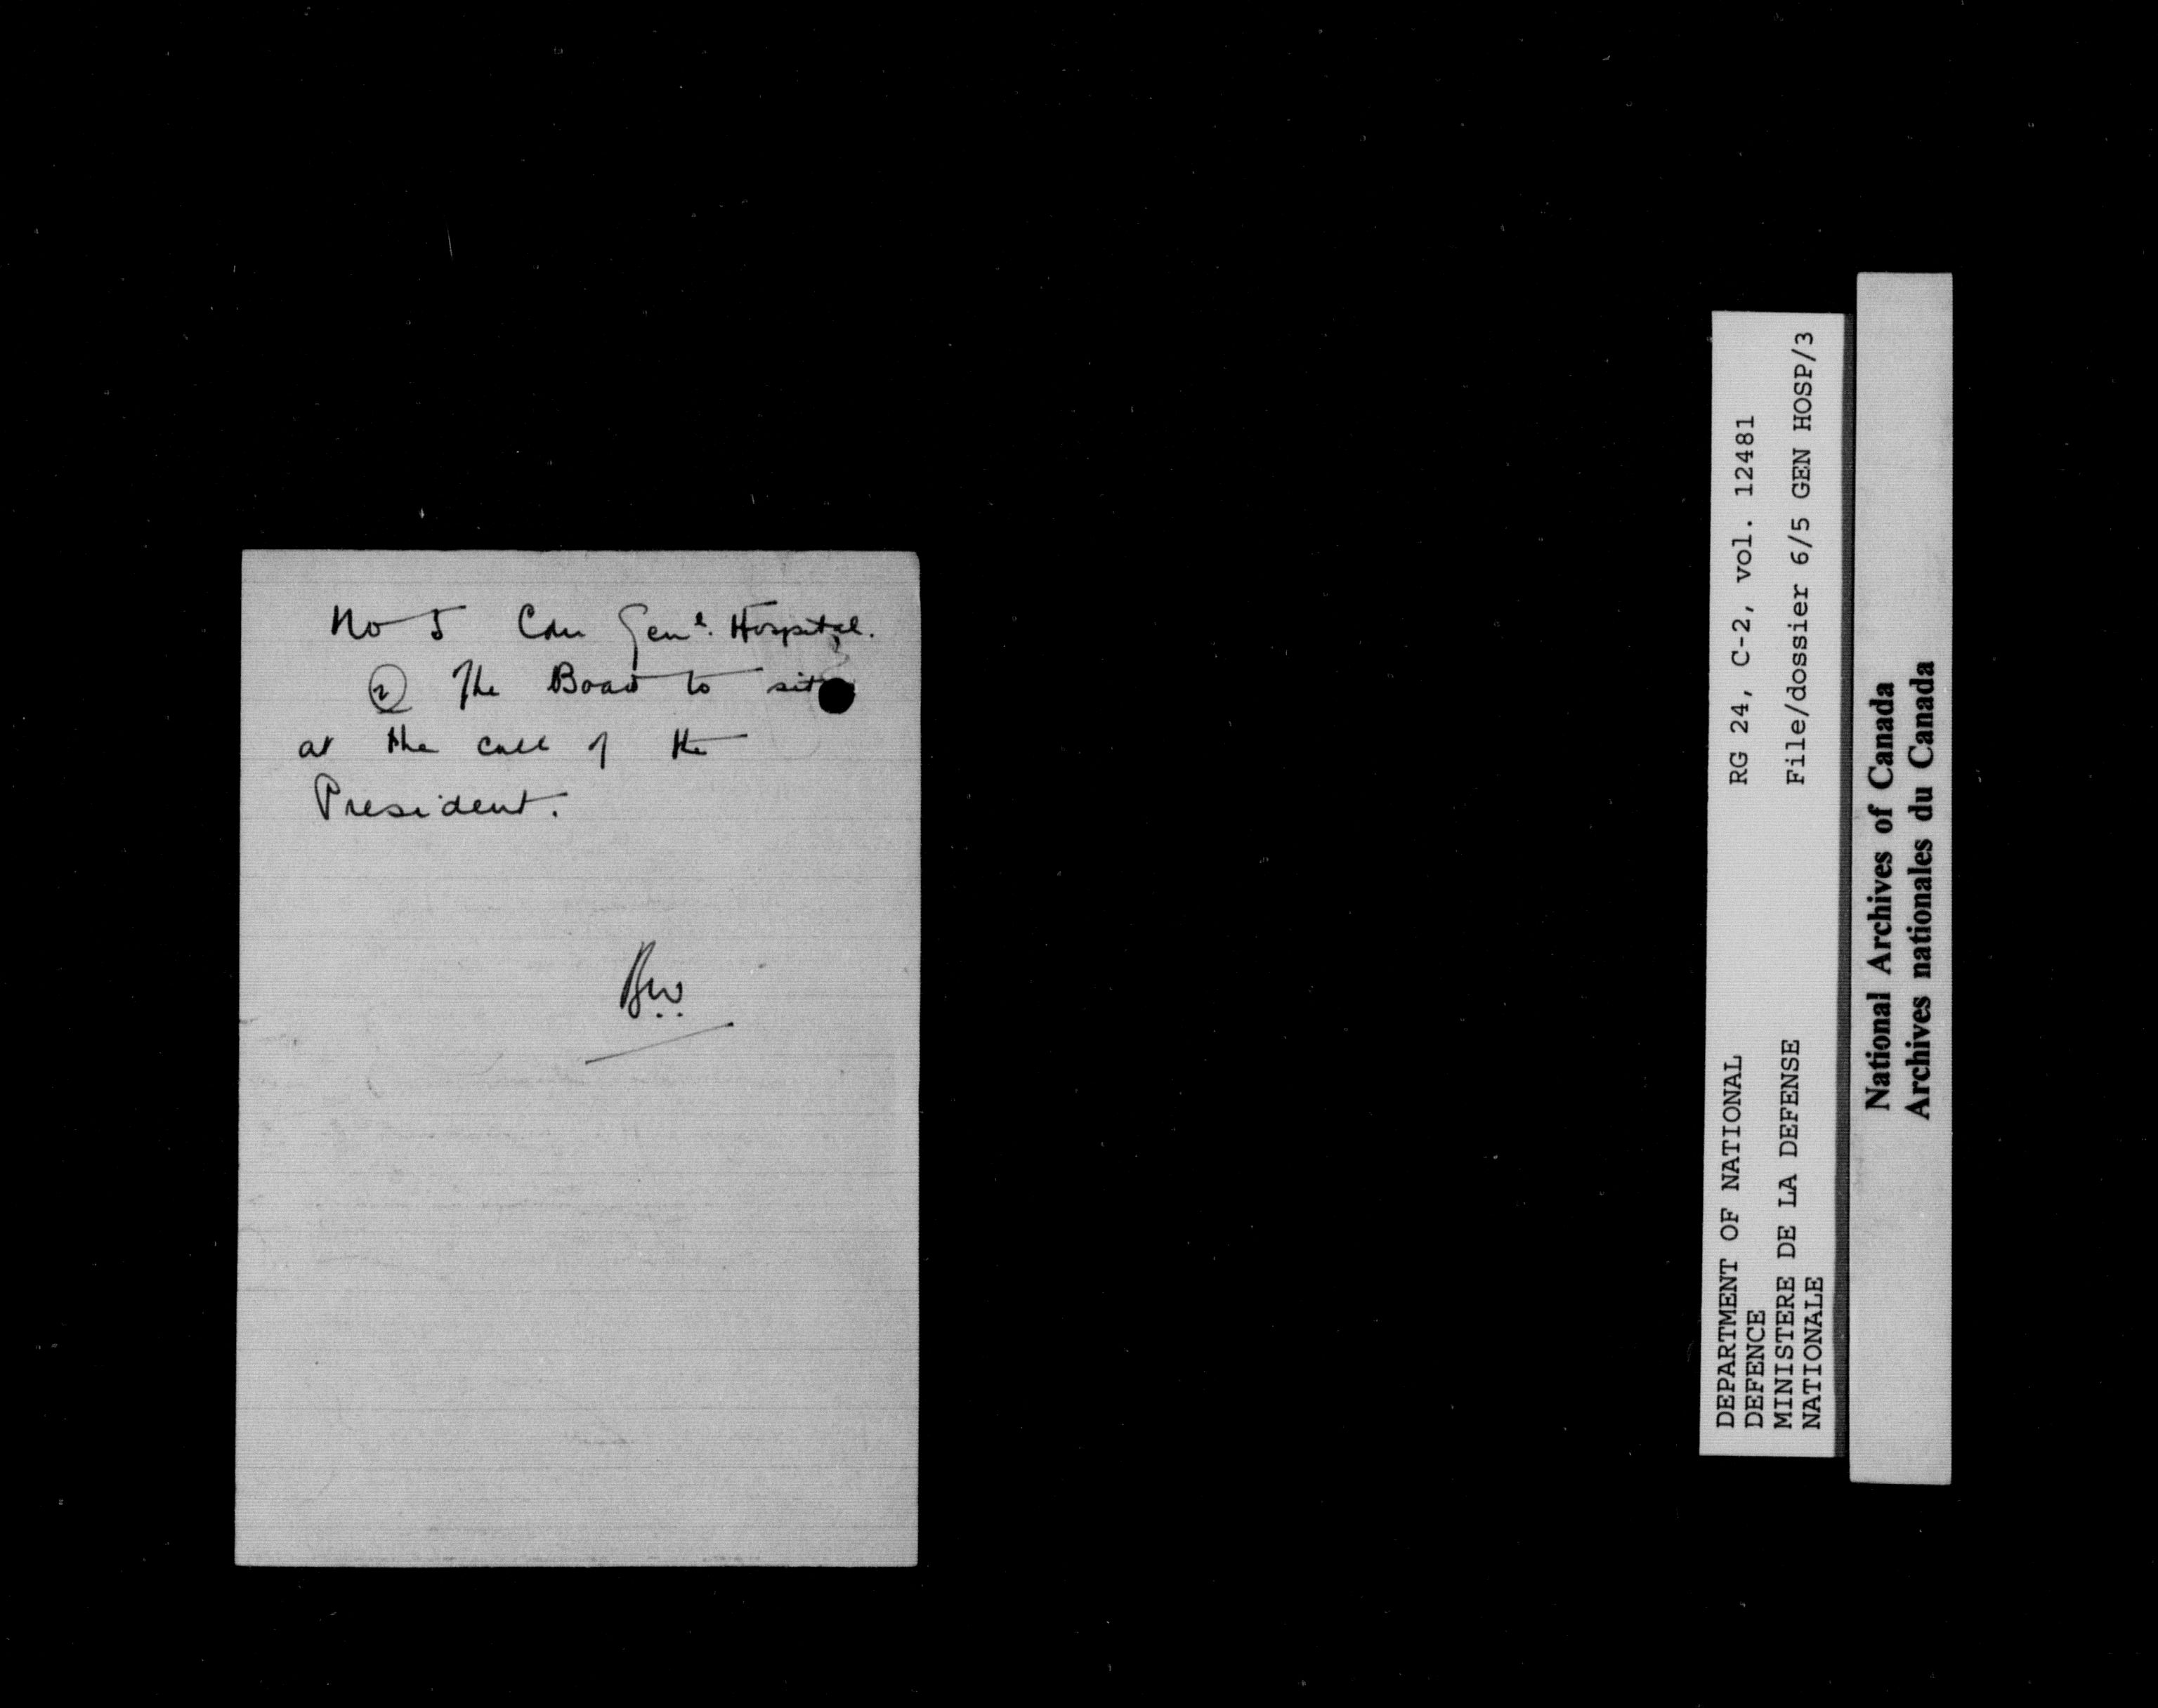 No 5 Cdn Genl. Hospital.
(2) The Board to sit
at the call of the
President.
RG 24, C-2, vol. 12481
File/dossier 6/5 GEN HOSP/3
DEPARTMENT OF NATIONAL
DEFENCE
MINISTERE DE LA DEFENSE
NATIONALE
National Archives of Canada
Archives nationales du Canada